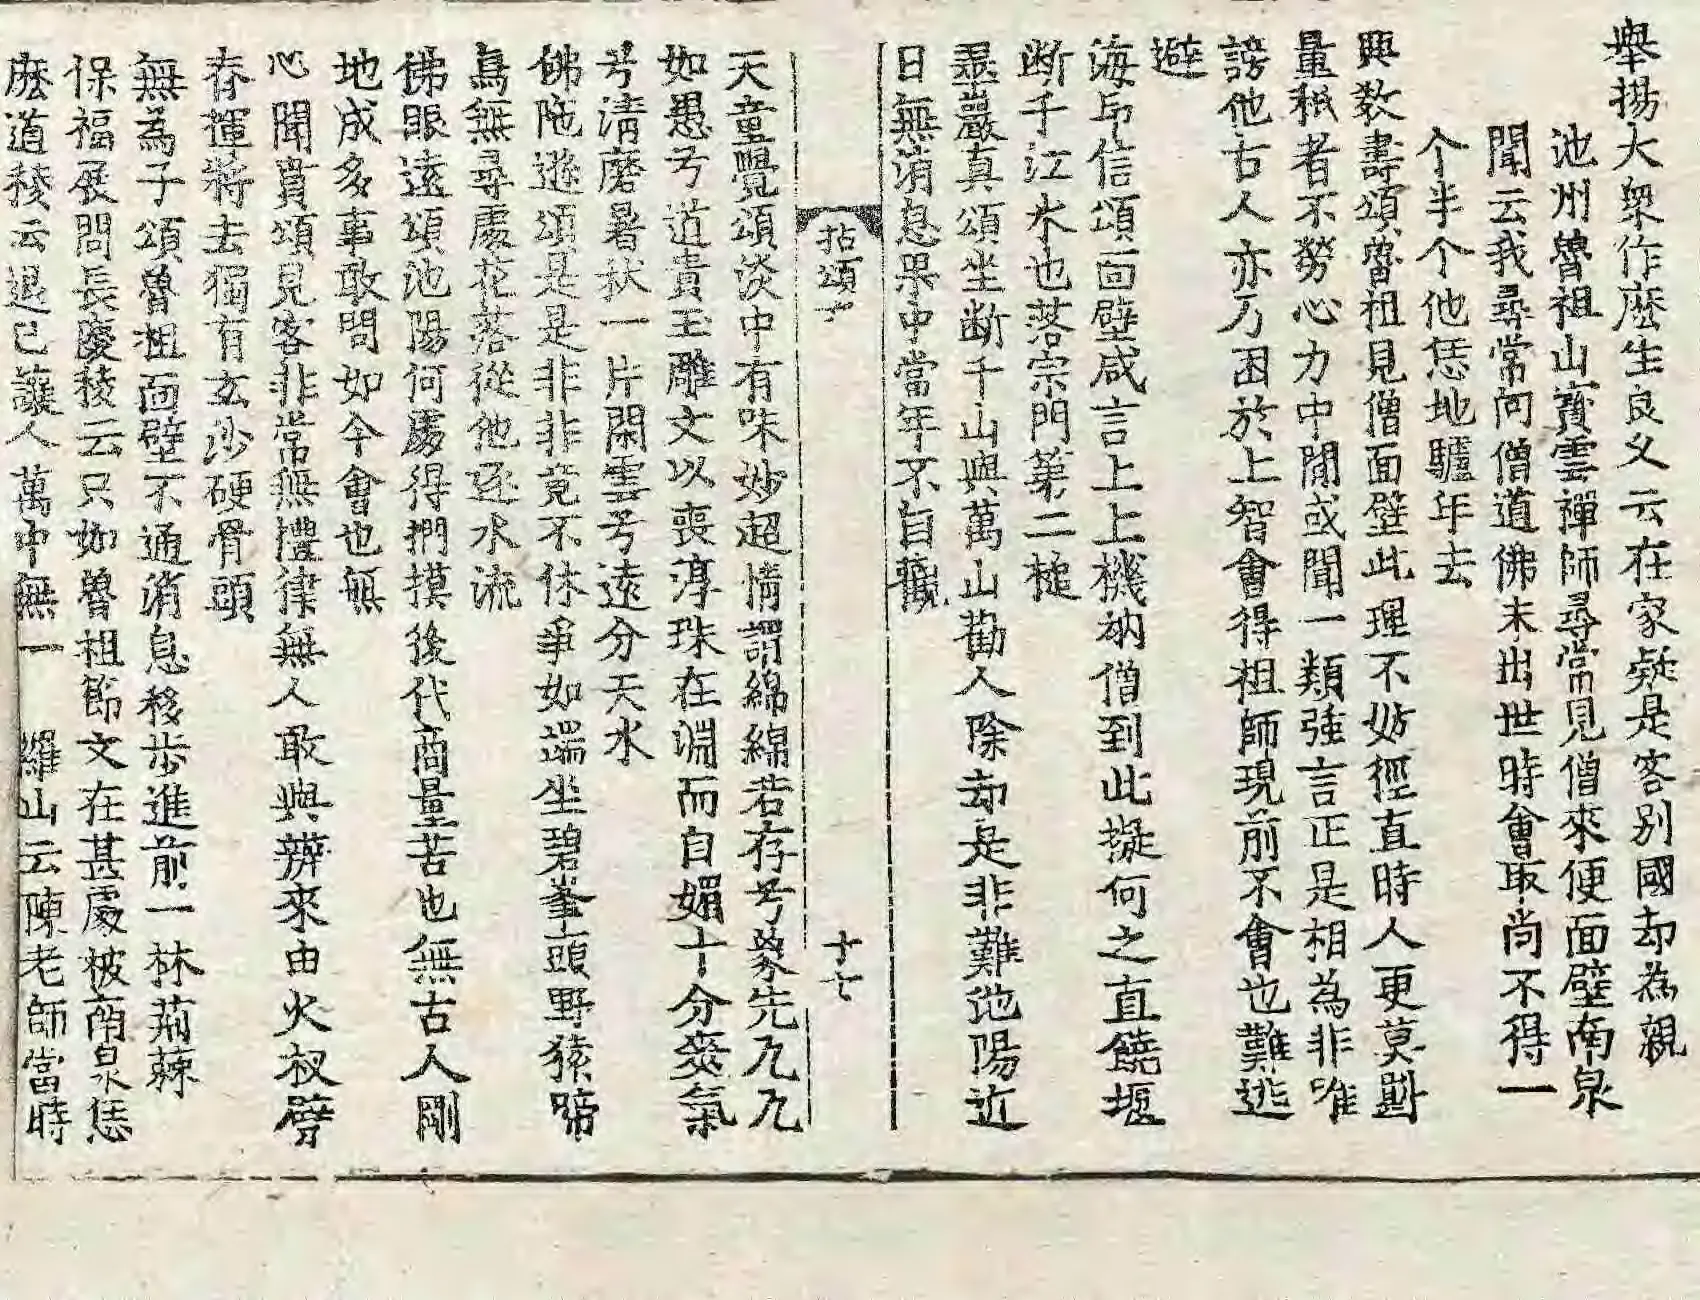 舉揚大衆作麽生良乂云在家疑是客別國却為親
池州魯祖山寶雲禪師尋常見僧來便面壁南泉
聞云我尋常向僧道佛未出世時會取尚不得一
个半个他恁地驢年去
興教壽頌魯祖見僧面壁此理不妨徑直時人更莫斟
量秖者不勞心力中間或聞一類強言正是相為非唯
謗他古人亦乃困於上智會得祖師現前不會也難逃
避
海印信頌面壁咸言上上機衲僧到此擬何之直饒堰
断千江水也落宗門第二槌
靈巖真頌坐断千山與萬山勸人除却是非難池陽近
日無消息果中當年不自觀
拈頌
十七
天童覺頌淡中有味妙超情謂綿綿若存兮象先兀兀
如愚兮道貴玉雕文以喪淳珠在淵而自媚十分爽氣
兮清磨暑秋一片閑雲兮遠分天水
佛陁遜頌是是非非竟不休爭如端坐碧峯頭野猿啼
鳥無尋處花落從他逐水流
佛眼遠頌池陽何處得捫摸後代商量苦也無古人剛
地成多事敢問如今會也無
心聞賁頌見客非常無禮律無人敢與辨來由火杈劈
春擓將去獨有玄沙硬骨頭
無為子頌魯祖面壁不通消息移步進前一林荊蕀
保福展問長慶稜云只如魯祖節文在甚處被南泉恁
麽道稜云退已讓人萬中無一 羅山云陳老師當時